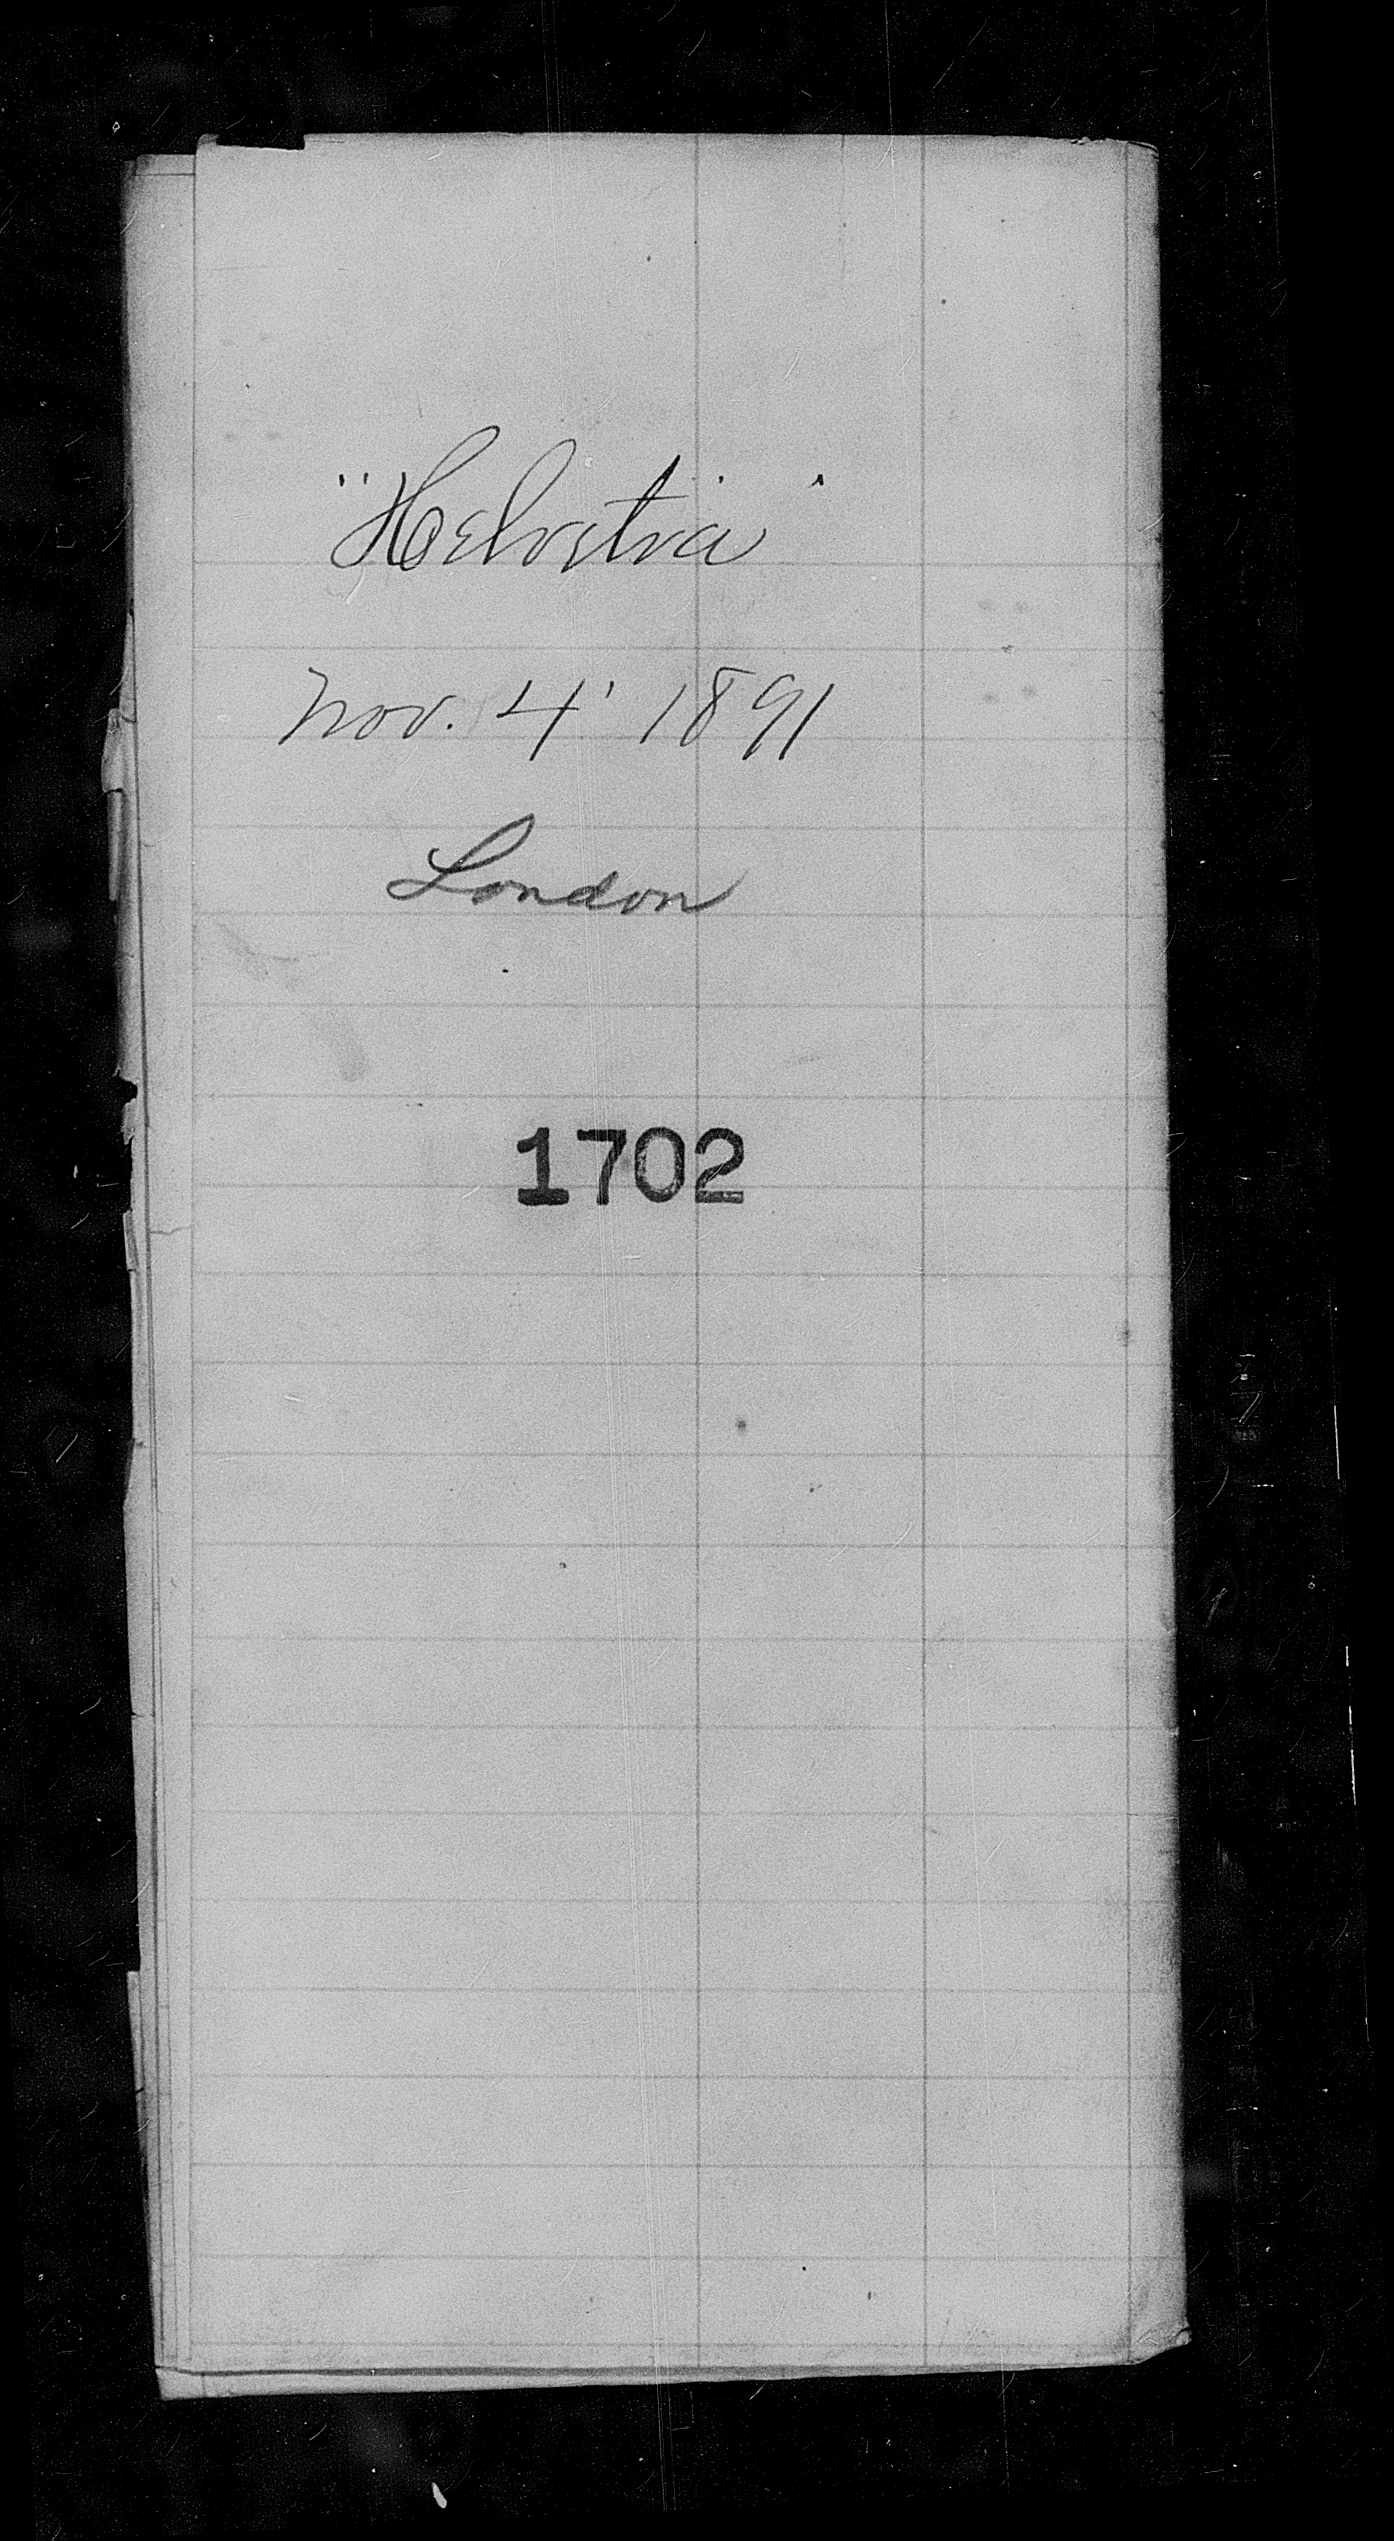 "Helvetia"
Nov. 4' 1891
London
1702